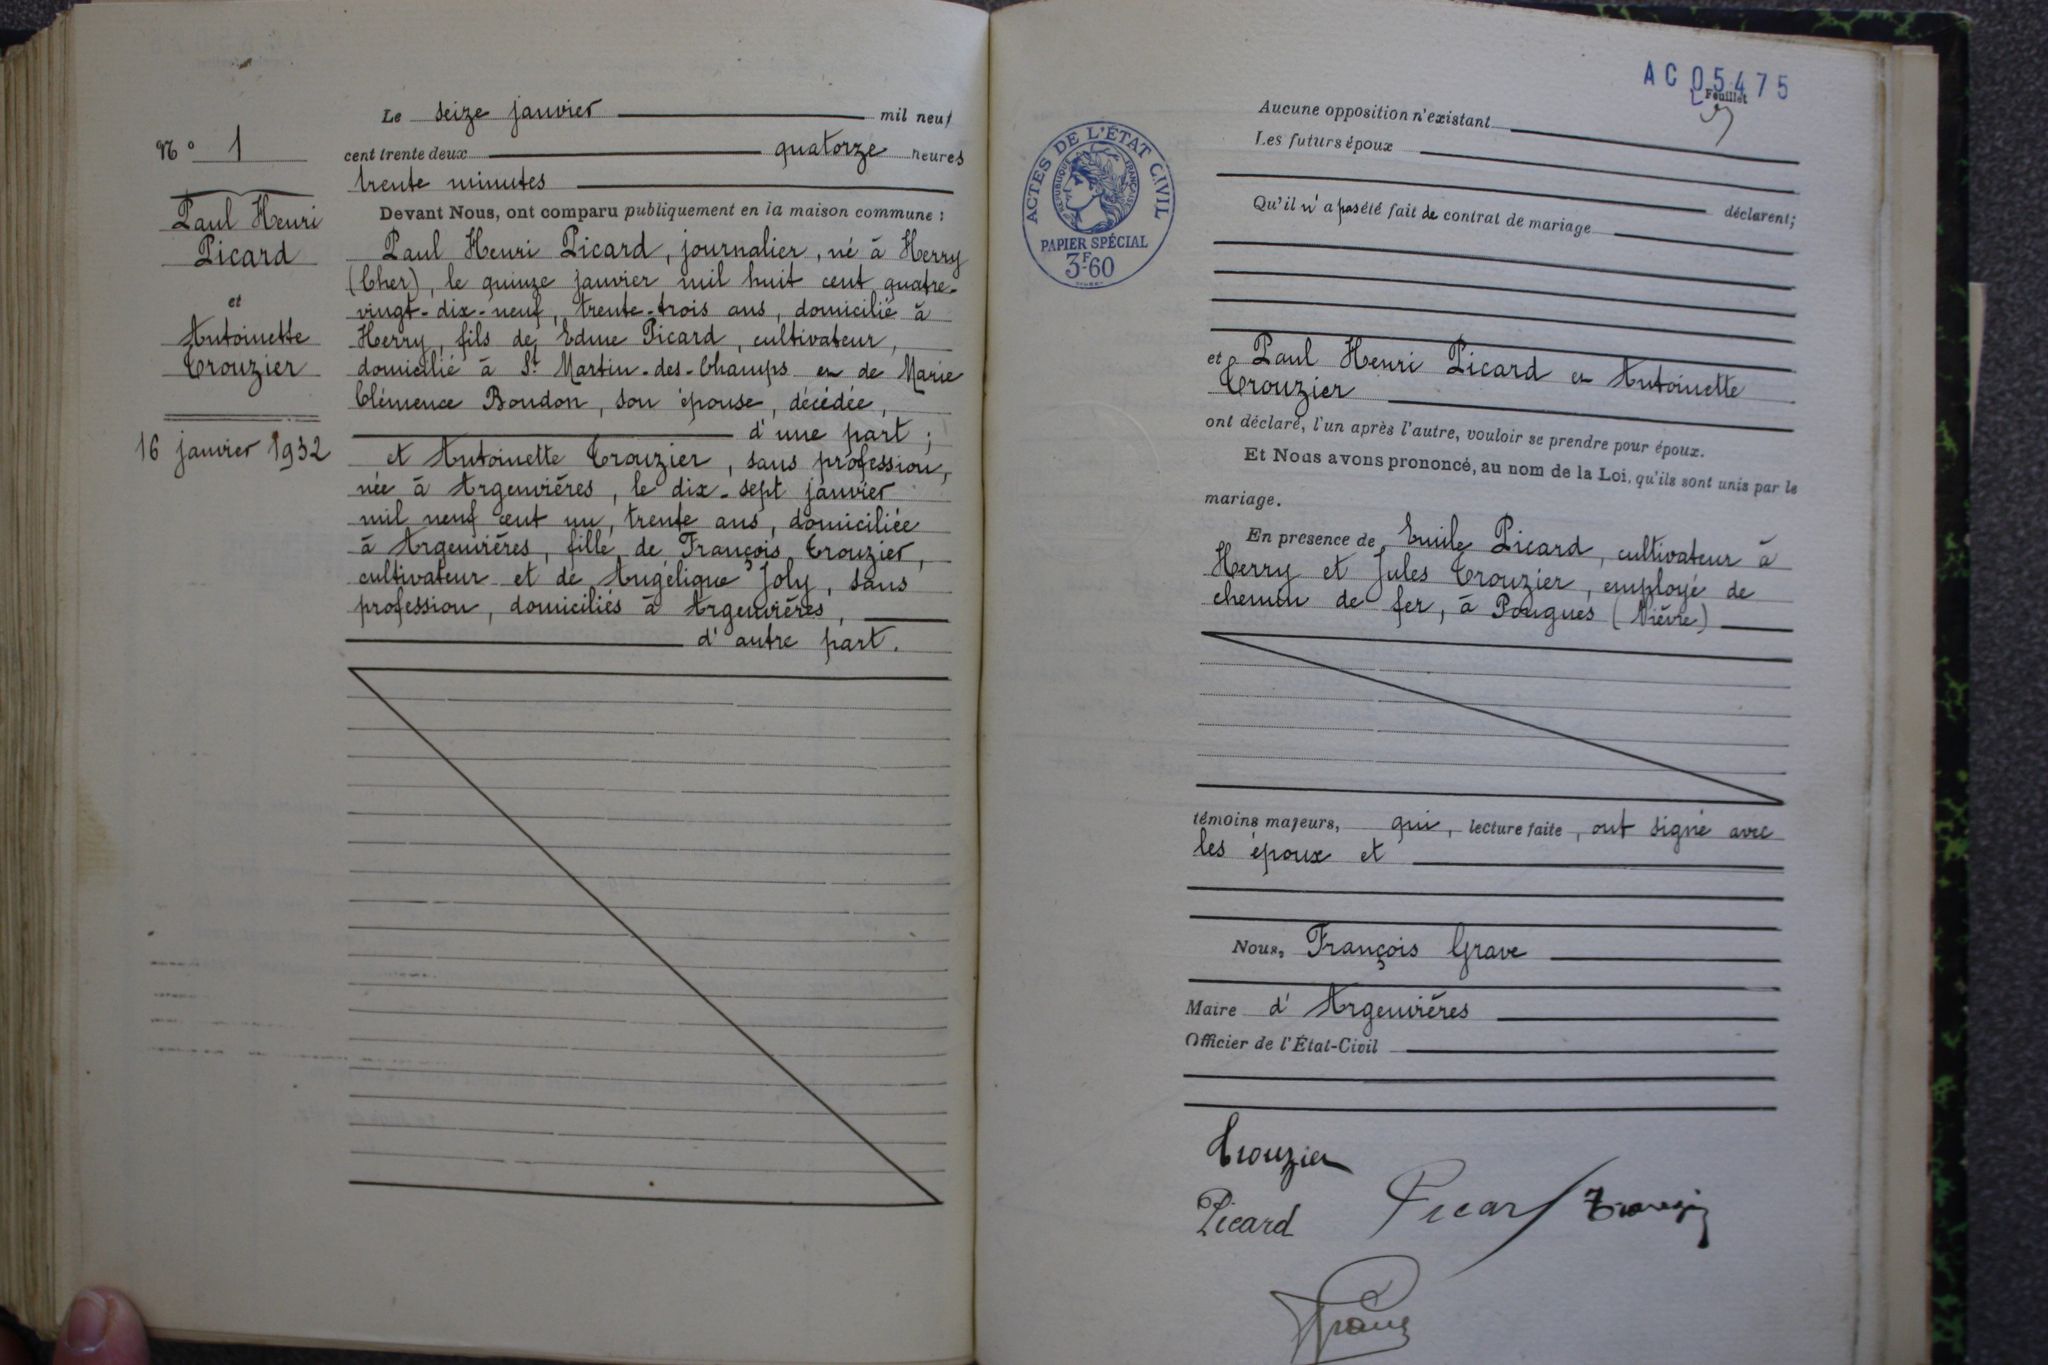 N° 1
Paul Henri
Picard
et
Antoinette
Trouzier
16 janvier 1932
Le seize janvier mil neuf
cent trente deux quatorze heures
trente minutes
Devant Nous, ont comparu publiquement en la maison commune :
Paul Henri Picard, journalier, né à Herry
(Cher), le quinze janvier mil huit cent quatre-
vingt-dix-neuf, trente-trois ans, domicilié à
Herry, fils de Edme Picard, cultivateur,
domicilié à St Martin-des-Champs et de Marie
Clémence Boudon, son épouse, décédée,
d'une part ;
et Antoinette Trouzier, sans profession,
née à Argenvières, le dix-sept janvier
mil neuf cent un, trente ans, domiciliée
à Argenvières, fille de François Trouzier,
cultivateur et de Angélique Joly, sans
profession, domiciliés à Argenvières,
d'autre part.
AC 05475
Feuillet
ACTES DE L'ÉTAT CIVIL
RÉPUBLIQUE FRANÇAISE
PAPIER SPÉCIAL
3F60
Aucune opposition n'existant
Les futurs époux
déclarent;
Qu'il n'a pas été fait de contrat de mariage
et Paul Henri Picard et Antoinette
Trouzier
ont déclaré, l'un après l'autre, vouloir se prendre pour époux.
Et Nous avons prononcé, au nom de la Loi, qu'ils sont unis par le
mariage.
En présence de Emile Picard, cultivateur à
Herry et Jules Trouzier, employé de
chemin de fer, à Pougues (Nièvre)
témoins majeurs, qui, lecture faite, ont signé avec
les époux et
Nous, François Grave
Maire d'Argenvières
Officier de l'État-Civil
Trouzier
Picard Picard Trouzier
Grave